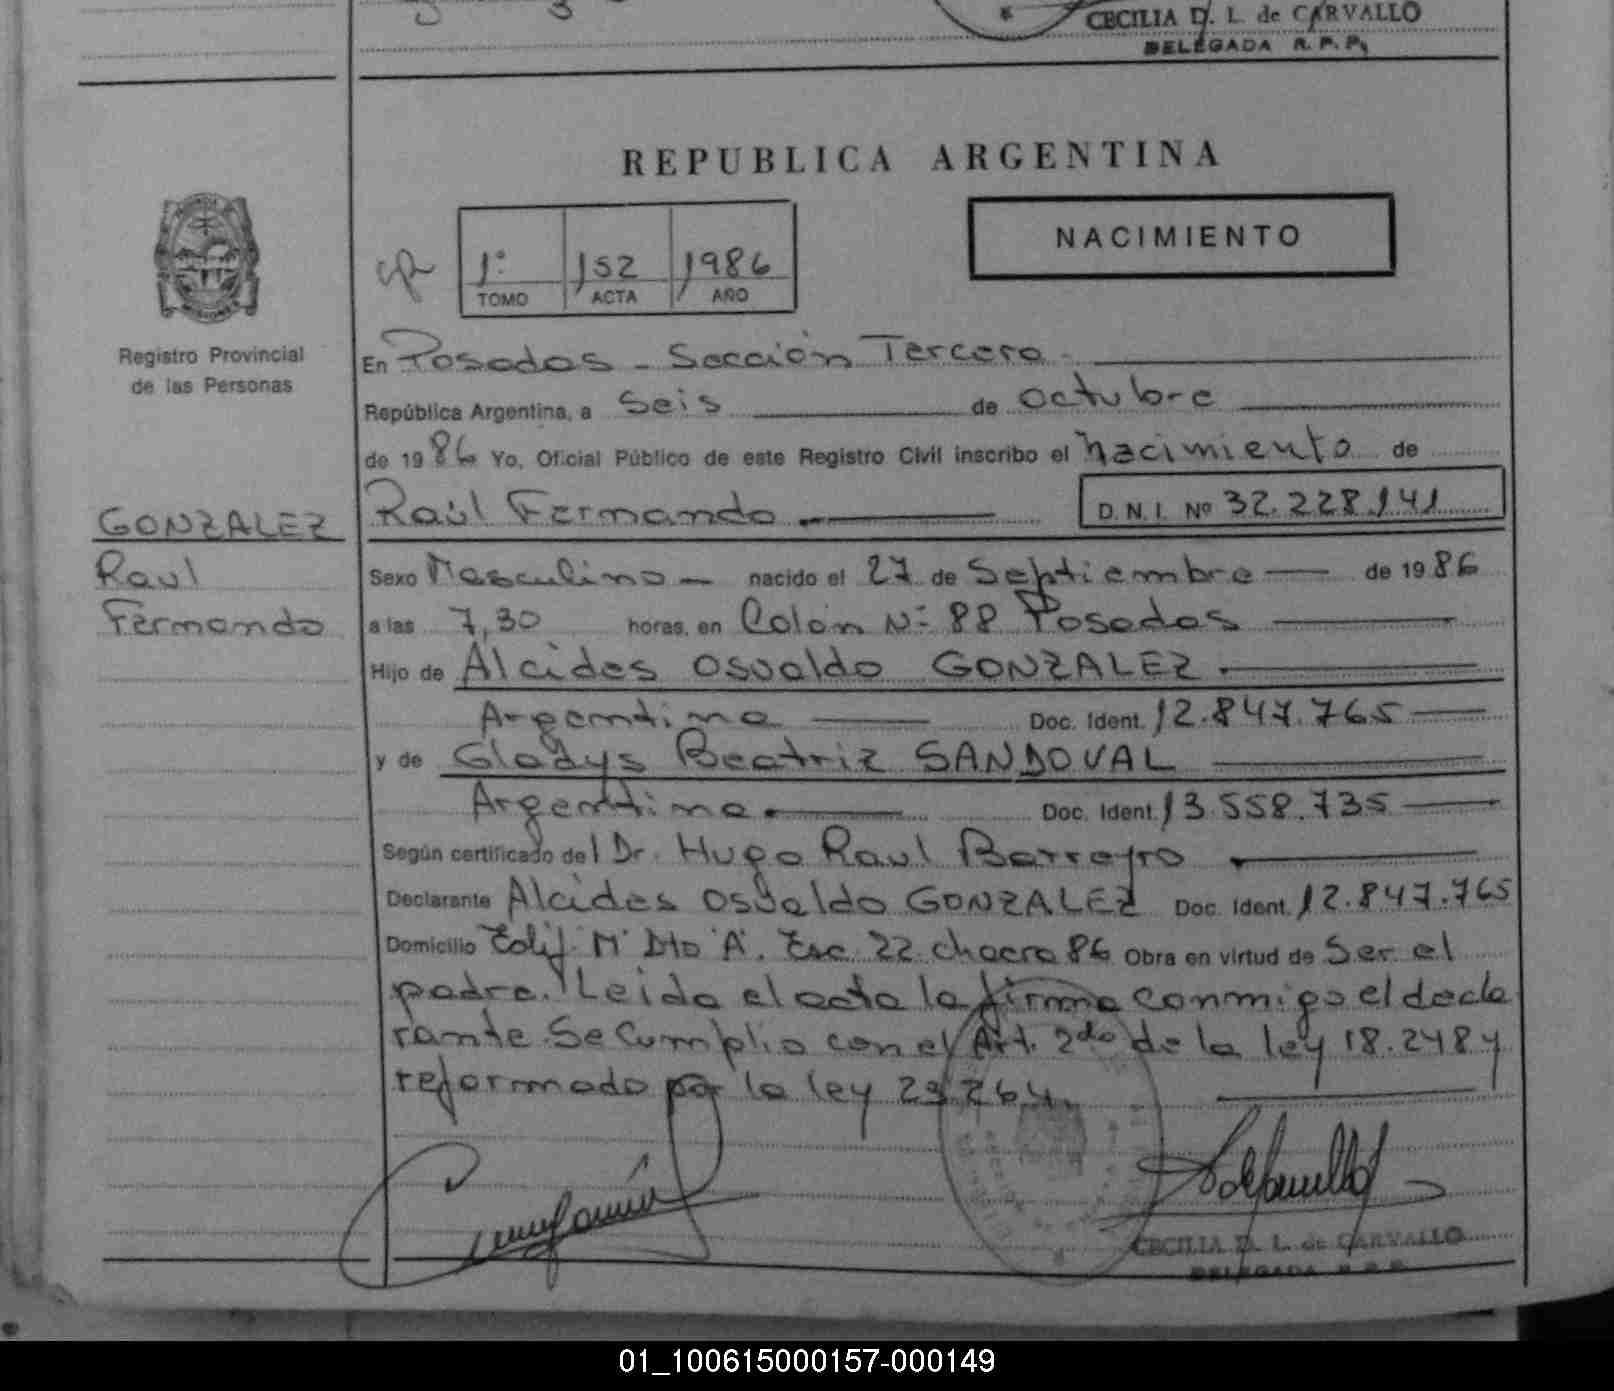 CECILIA D. L. de CARVALLO
DELEGADA R. P. P.
REPUBLICA ARGENTINA
NACIMIENTO
1º 152 1986
TOMO ACTA AÑO
Registro Provincial
de las Personas
En Posadas - Sección Tercera
República Argentina, a Seis de octubre
de 1986 Yo, Oficial Público de este Registro Civil inscribo el nacimiento de
GONZALEZ
Raul
Fernando
Raúl Fernando D. N. I. Nº 32.228.141
Sexo Masculino nacido el 27 de Septiembre de 1986
a las 7,30 horas, en Colón Nº 88 Posadas
Hijo de Alcides Osvaldo GONZALEZ
Argentina Doc. Ident. 12.847.765
y de Gladys Beatriz SANDOVAL
Argentina Doc. Ident. 13.558.735
Según certificado del Dr. Hugo Raul Barreyro
Declarante Alcides Osvaldo GONZALEZ Doc. Ident. 12.847.765
Domicilio Edif. "M" Dto "A". Esc. 22 chacra 86 Obra en virtud de Ser el
padre. Leida el acta la firma conmigo el decla
rante. Se Cumplio con el Art. 2do de la ley 18.248 y
reformado por la ley 23.264.
CECILIA D. L. de CARVALLO
DELEGADA R. P. P.
01_100615000157-000149